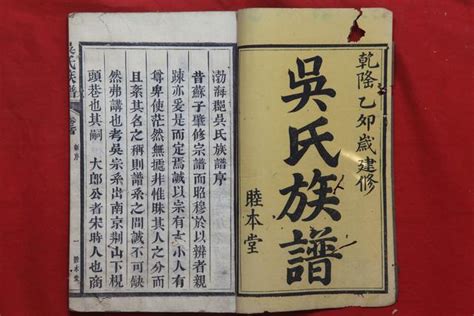 乾隆乙卯歲建修
吳氏族譜
睦本堂
渤海郡吳氏族譜序
昔蘇子修宗譜而昭穆於以辨者親
踈亦是而定焉誠以宗有大小人有
尊卑使茫然無非惟昧其人之分而
且紊其名之稱則譜系之間誠不可缺
然弗講也考吳宗系出南京荆山下
頭巷也其嗣 大郎公者宋時人也商
吳氏族譜
卷首
序
一
睦本堂